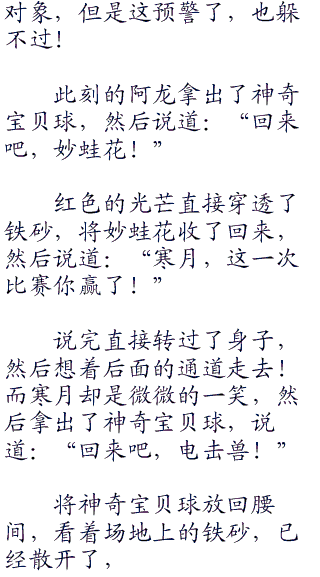 对象，但是这预警了，也躲
不过！
此刻的阿龙拿出了神奇
宝贝球，然后说道：“回来
吧，妙蛙花！”
红色的光芒直接穿透了
铁砂，将妙蛙花收了回来，
然后说道：“寒月，这一次
比赛你赢了！”
说完直接转过了身子，
然后想着后面的通道走去！
而寒月却是微微的一笑，然
后拿出了神奇宝贝球，说
道：“回来吧，电击兽！”
将神奇宝贝球放回腰
间，看着场地上的铁砂，已
经散开了，